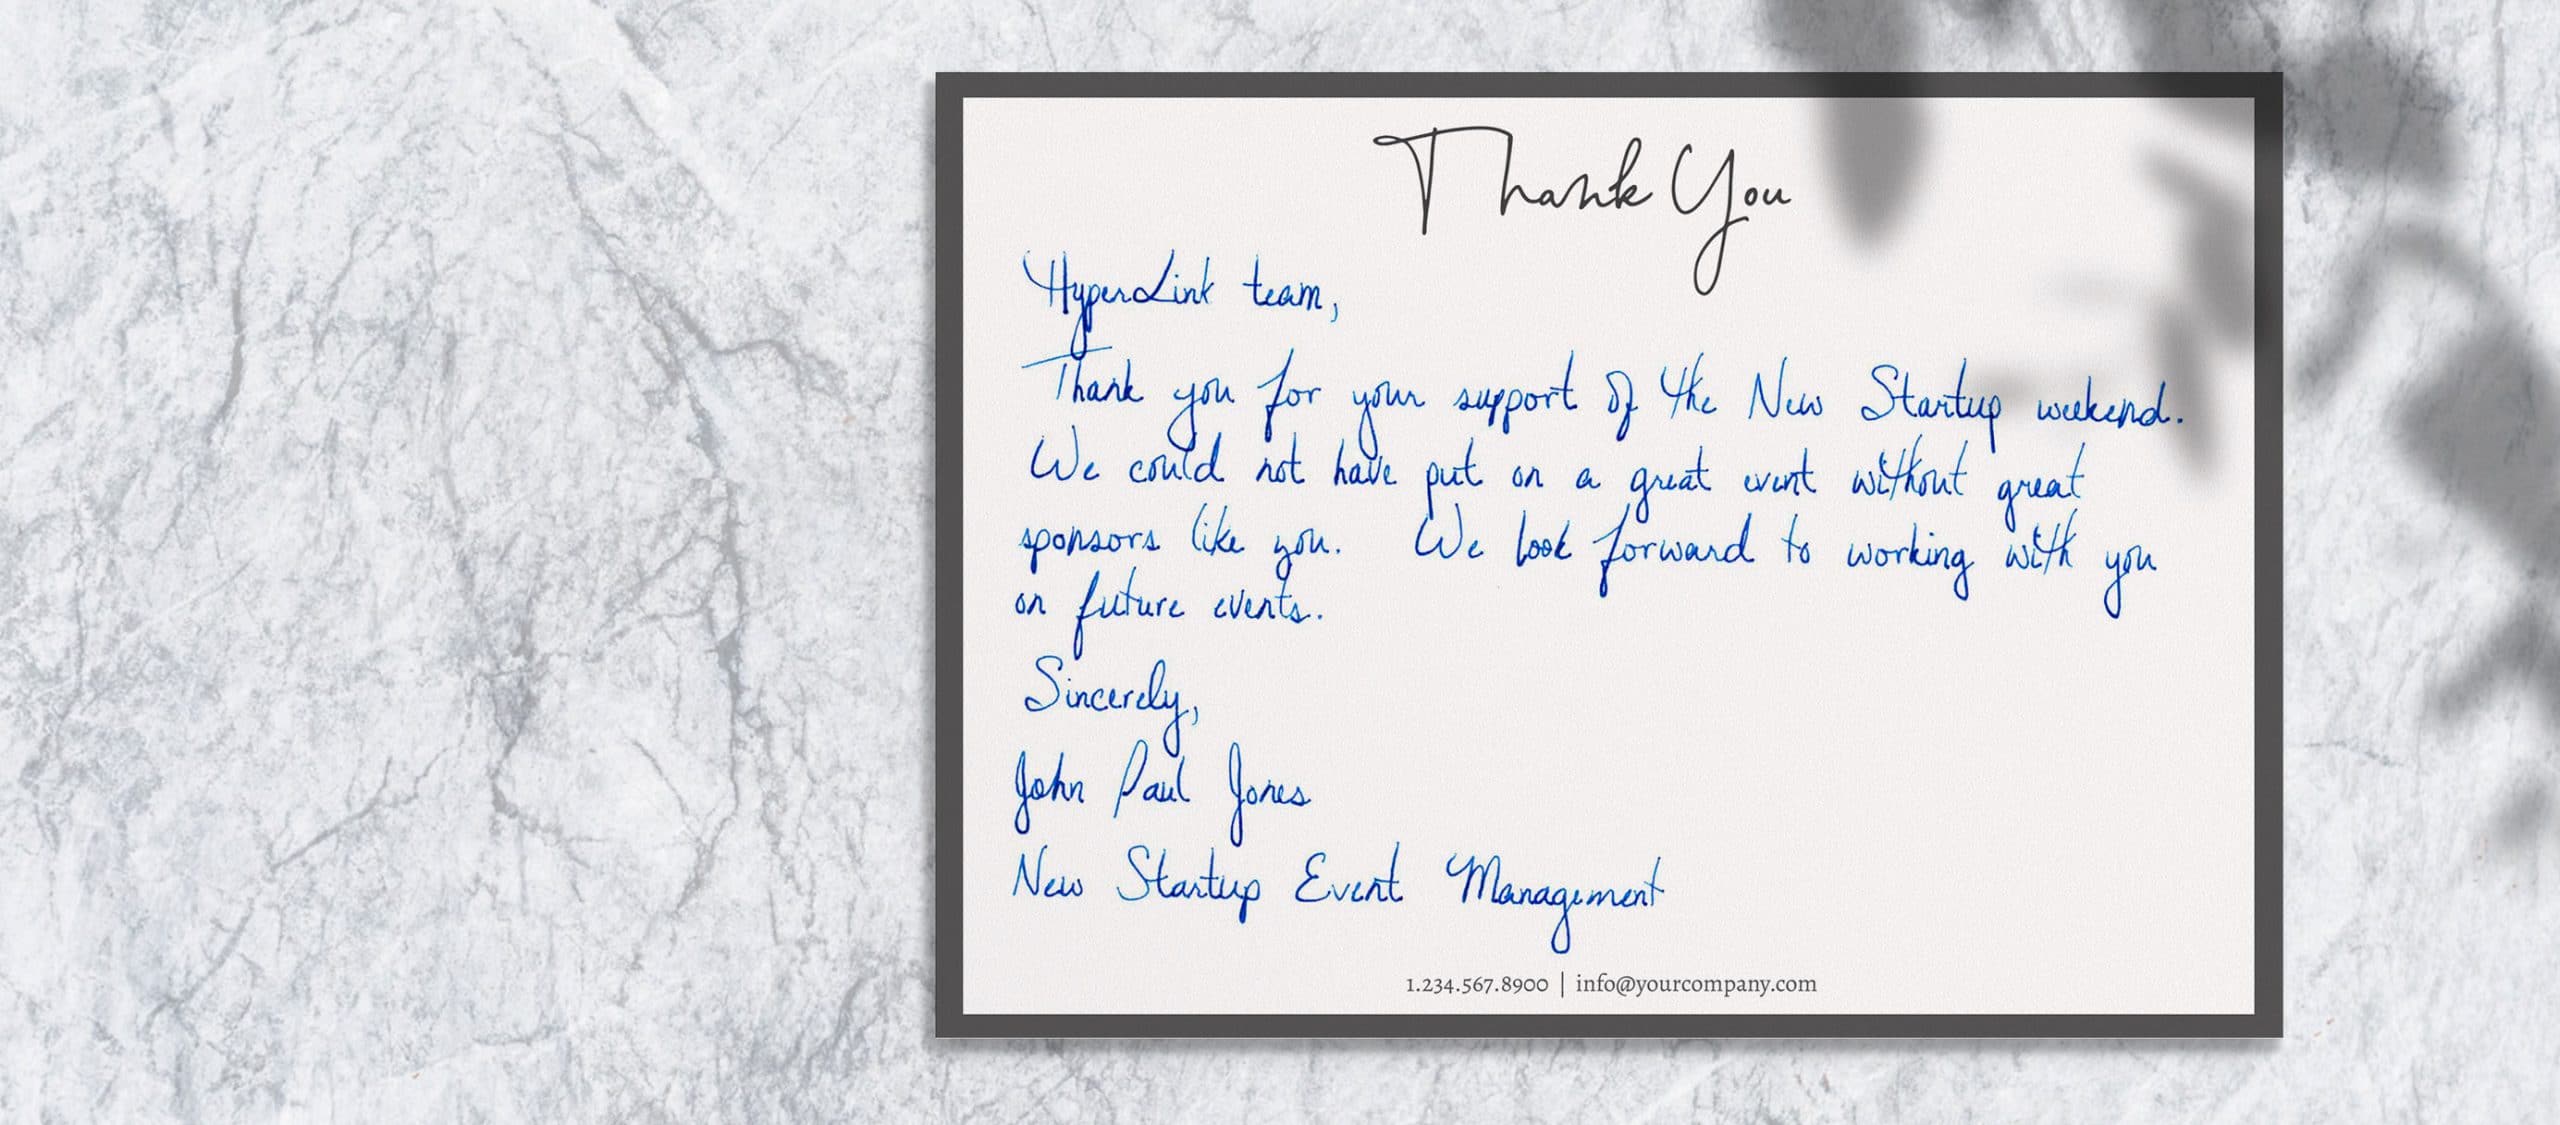 Thank You
HyperLink team,
Thank you for your support of the New Startup weekend.
We could not have put on a great event without great
sponsors like you. We look forward to working with you
on future events.
Sincerely,
John Paul Jones
New Startup Event Management
1.234.567.8900 | info@yourcompany.com